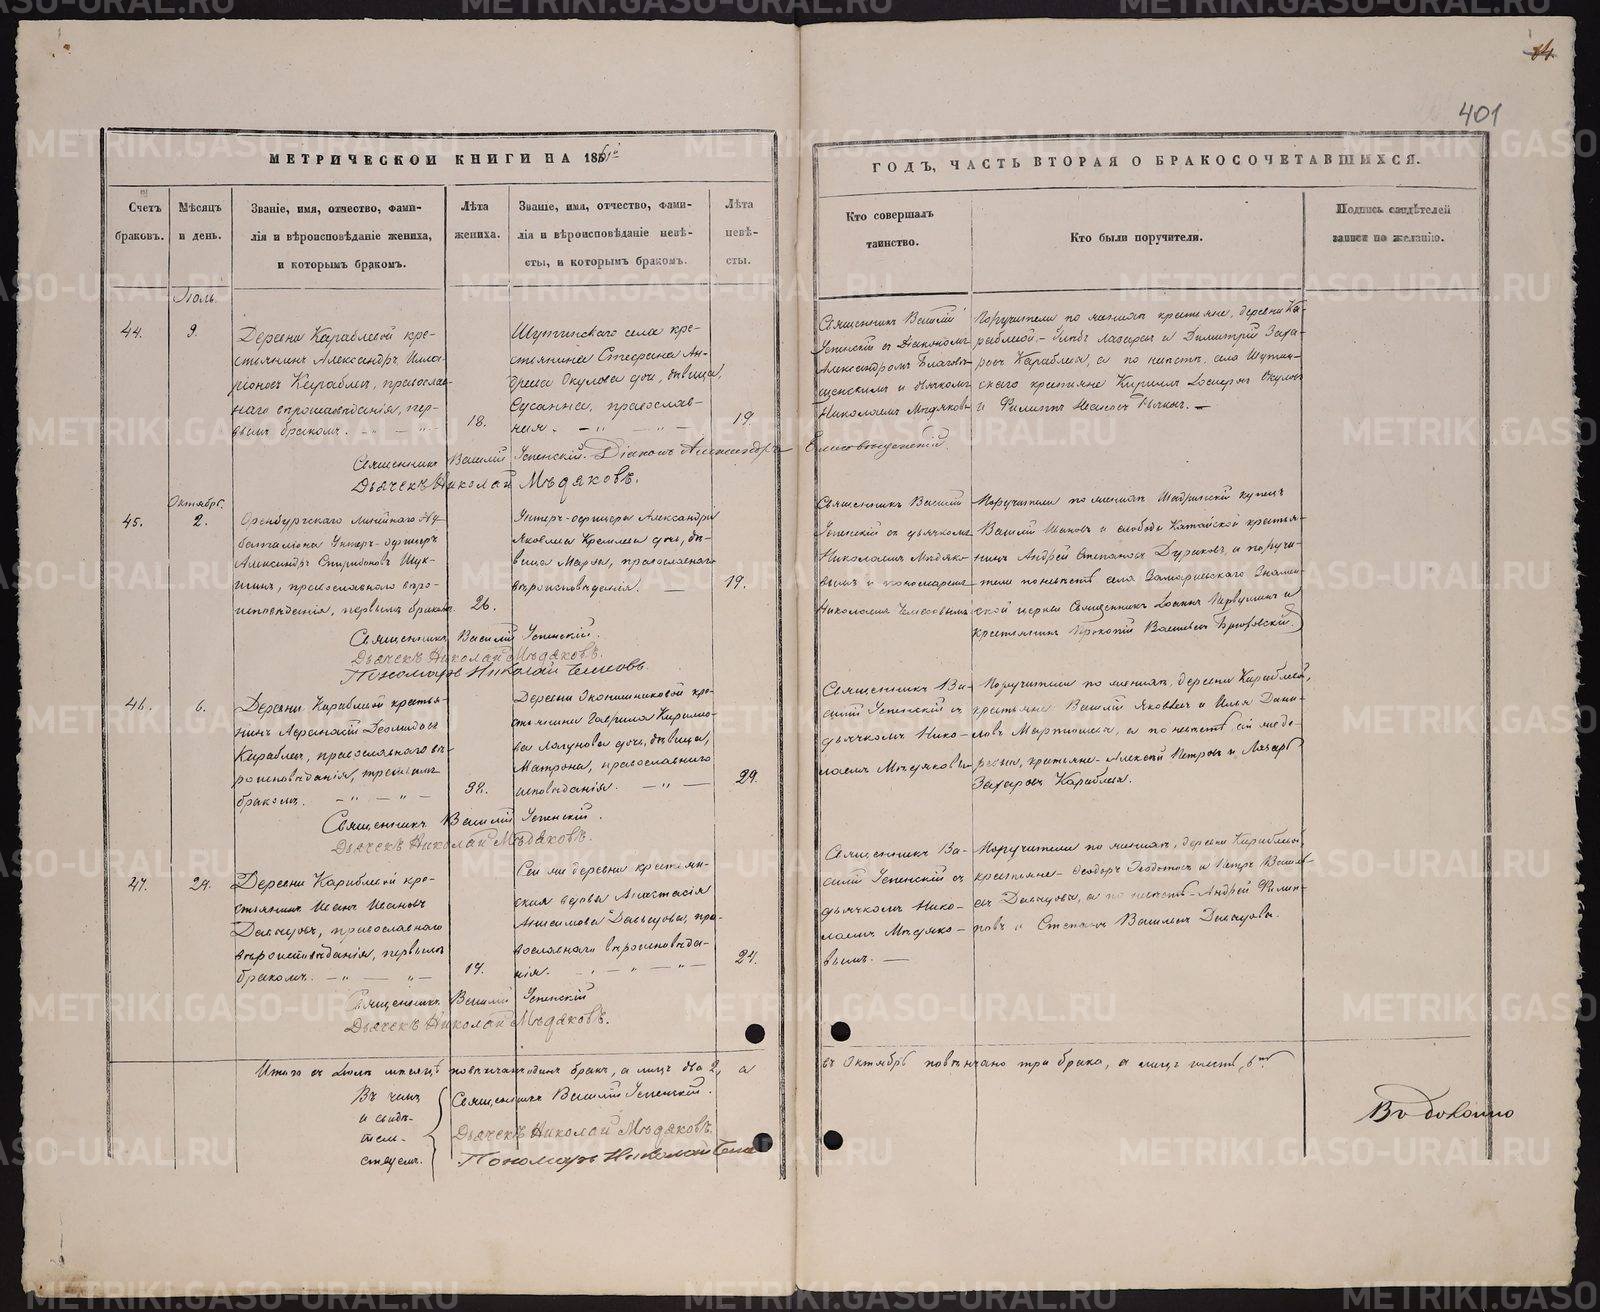 84.
401
МЕТРИЧЕСКОЙ КНИГИ НА 1861й
ГОДЪ, ЧАСТЬ ВТОРАЯ О БРАКОСОЧЕТАВШИХСЯ.
Счетъ браковъ.
Мѣсяцъ и день.
Званіе, имя, отчество, фами-
лія и вѣроисповѣданіе жениха,
и которымъ бракомъ.
Лѣта жениха.
Званіе, имя, отчество, фами-
лія и вѣроисповѣданіе невѣ-
сты, и которымъ бракомъ.
Лѣта невѣ-
сты.
Кто совершалъ
таинство.
Кто были поручители.
Подпись свидѣтелей
записи по желанію.
Іюль.
44.
9.
Деревни Караблевой кре-
стьянинъ Александръ
Караблевъ, православ-
наго вѣроисповѣданія, пер-
вымъ бракомъ.
18.
села кре-
стьянина Стефана Ан-
дреева Окулова дочь, дѣвица,
Сусанна, православ-
ная.
19.
Священникъ Василій
Успенскій съ Діакономъ
Александромъ Благовѣ-
щенскимъ и дьячкомъ
Николаемъ Мѣдяковы
Поручители по женихѣ крестьяне, деревни Ка-
раблевой, Лазаревъ и Димитрій Заха-
ровъ Караблевы, а по невѣстѣ, села
крестьяне Кириллъ Окуловъ
и Филиппъ
Священникъ Василій Успенскій. Діаконъ Александръ Благовѣщенскій
Дьячекъ Николай Мѣдяковъ.
Октябрь.
45.
2.
Оренбургскаго линейнаго
баталіона Унтеръ-офицеръ
Александръ Спиридоновъ Щук-
инъ, православнаго вѣро-
исповѣданія, первымъ бракомъ.
26.
Унтеръ-офицера Александра
Яковлева дочь, дѣ-
вица Марья, православнаго
вѣроисповѣданія.
19.
Священникъ Василій
Успенскій съ дьячкомъ
Николаемъ Мѣдяко-
вымъ и пономаремъ
Николаемъ
Поручители по женихѣ Шадринскій купецъ
Василій Ивановъ и слободы Катайской крестья-
нинъ Андрей Степановъ Дураковъ, а поручи-
тели по невѣстѣ села Замараевскаго Знамен-
ской церкви Священникъ Іоаннъ Первушинъ и
крестьянинъ Прокопій Васильевъ
Священникъ Василій Успенскій.
Дьячекъ Николай Мѣдяковъ.
Пономарь Николай
46.
6.
Деревни Караблевой крестья-
нинъ Афанасій
Караблевъ, православнаго вѣ-
роисповѣданія, третьимъ
бракомъ.
38.
Деревни Оконишниковой кре-
стьянина Гаврила Кирилло-
ва дочь, дѣвица,
Матрона, православнаго
исповѣданія.
29.
Священникъ Ва-
силій Успенскій съ
дьячкомъ Нико-
лаемъ Мѣдяковы
Поручители по женихѣ, деревни Караблевой,
крестьяне Василій Яковлевъ и Илья Дани-
ловъ Мартюшевы, а по невѣстѣ, сей же де-
ревни, крестьяне - Алексѣй Петровъ и Лазарь
Захаровъ Караблевы.
Священникъ Василій Успенскій.
Дьячекъ Николай Мѣдяковъ.
47.
29.
Деревни Караблевой кре-
стьянинъ Иванъ Ивановъ
Давыдовъ, православнаго
вѣроисповѣданія, первымъ
бракомъ.
19.
Сей же деревни крестьян-
ская вдова Анастасія
Анисимова Давыдова, пра-
вославнаго вѣроисповѣда-
нія.
24.
Священникъ Ва-
силій Успенскій съ
дьячкомъ Нико-
лаемъ Мѣдяко-
вымъ.
Поручители по женихѣ, деревни Караблевой,
крестьяне - Ѳеодоръ Ѳедотовъ и Петръ Василь-
евъ Давыдовы, а по невѣстѣ - Андрей Филип-
повъ и Степанъ Васильевъ Давыдовы.
Священникъ Василій Успенскій
Дьячекъ Николай Мѣдяковъ.
Итого въ Іюлѣ мѣсяцѣ повѣнчанъ одинъ бракъ, а лицъ два 2, а
въ Октябрѣ повѣнчано три брака, а лицъ шесть, 6.
Въ чемъ
и свидѣ-
тель-
ствуемъ.
Священникъ Василій Успенскій.
Дьячекъ Николай Мѣдяковъ.
Пономарь Николай
METRIKI.GASO-URAL.RU